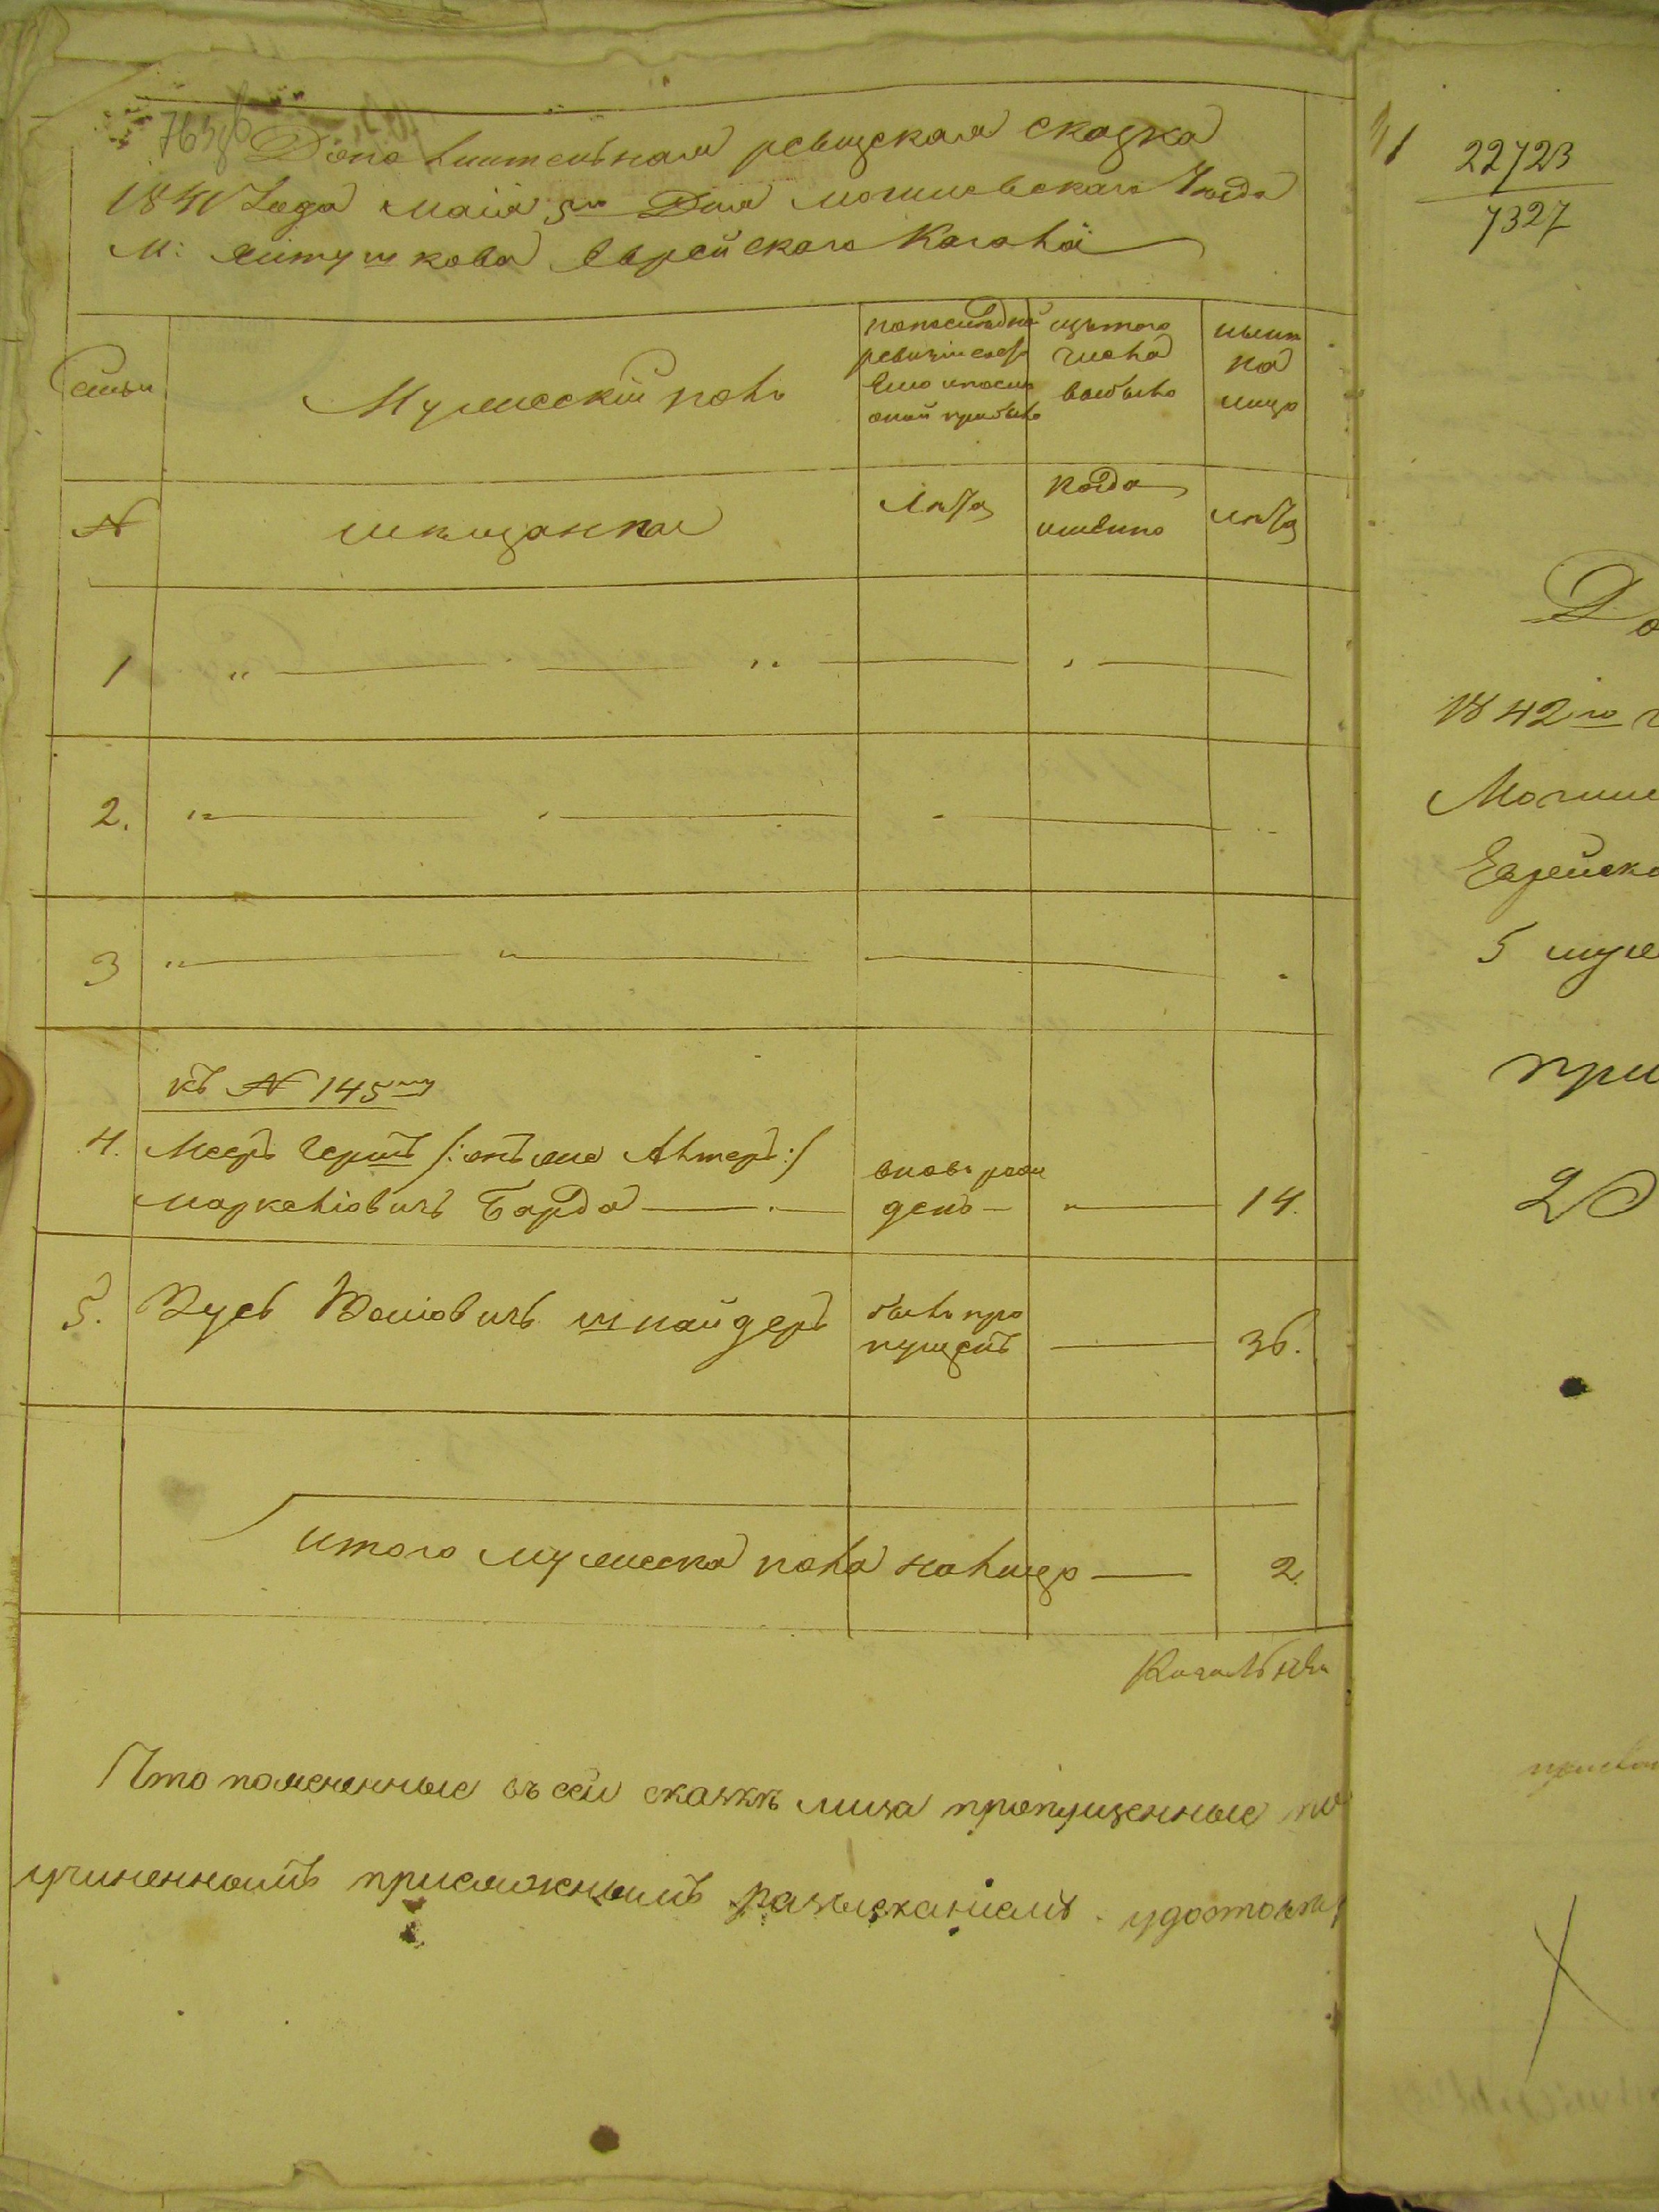 Дополнительная ревизская сказка
1841 года маія 5го Дня могилевскаго Уезда
М: Яитушкова Еврейскаго Кагала
Семьи
Мужескій полъ
по последней
ревизіи состо
яло и после
оной прибыло
изъ того
числа
выбыло
ныне
на
лицо
№
мещанъ
лета
когда
именно
лета
1
2.
3
къ № 145му
4. Мееръ Гершъ /:онъ же Алтеръ:/
Маркеліовичъ Барда
вновь рож
денъ
14.
5. Зусь Воліовичъ Шнайдеръ
былъ про
пущенъ
36.
Итого мужеска пола на лицо
2.
Кагальны
Что поясненные въ сей сказке лица пропущенные по
учиненнымъ присяжнымъ разысканіемъ удостове
1
22723
7327
До
1842го г
Могиле
Еврейско
5 муже
при
20